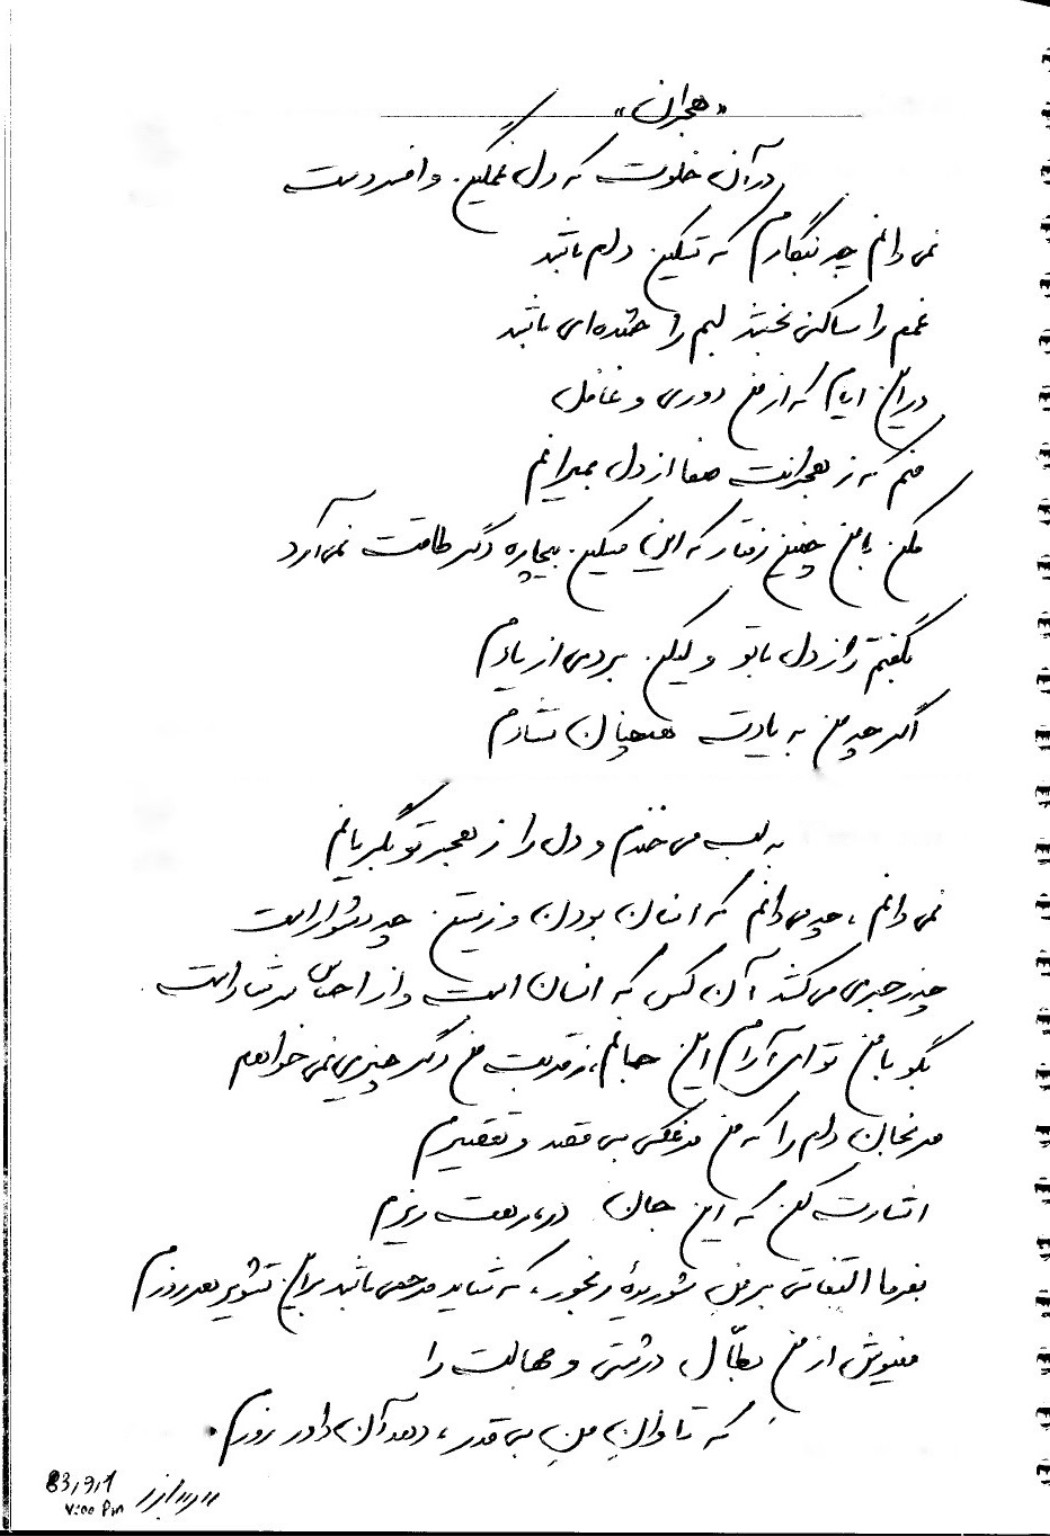 «هجران»
در آن خلوت که دل غمگین و افسردست
نمی دانم چه بنگارم که تسکین دلم باشد
غمم را ساکنی بخشد لبم را خنده ای باشد
در این ایام که از من دوری و غافل
منم که ز هجرانت صفا از دل بمیرانم
مکن با من چنین رفتار که این مسکین بیچاره دگر طاقت نمی آرد
بگفتم راز دل با تو ولیکن بردی از یادم
اگر چه من به یادت همچنان شادم
به لب می خندم و دل را ز هجر تو بگریانم
نمی دانم، چه می دانم که انسان بودن و زیستن چه دشوار است
چه زجری می کشد آن کس که انسان است و از احساس سرشار است.
بگو با من تو ای آرام این جانم، ز قربت من دگر چیزی نمی خواهم
مرنجان دلم را که من مرغکی بی قصد و تقصیرم
اشارت کن که این جان در رهت ریزم
بفرما التفاتی بر من شوریدهٔ رنجور، که شاید مرحمی باشد برای تشویر هر روزم
منیوش از من بطّال درشتی و جهالت را
که تاوان من بی قدر، دهد آن داور روزم.
83,9,1
7:00 Pm